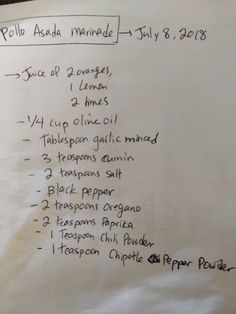 Pollo Asada marinade → July 8, 2018
→ Juice of 2 oranges,
1 Lemon
2 limes
- 1/4 cup olive oil
- Tablespoon garlic minced
- 3 teaspoons cumin
- 2 teaspoons salt
- Black pepper
- 2 teaspoons oregano
- 2 teaspoons Paprika
- 1 Teaspoon Chili Powder
- 1 teaspoon Chipotle Pepper Powder